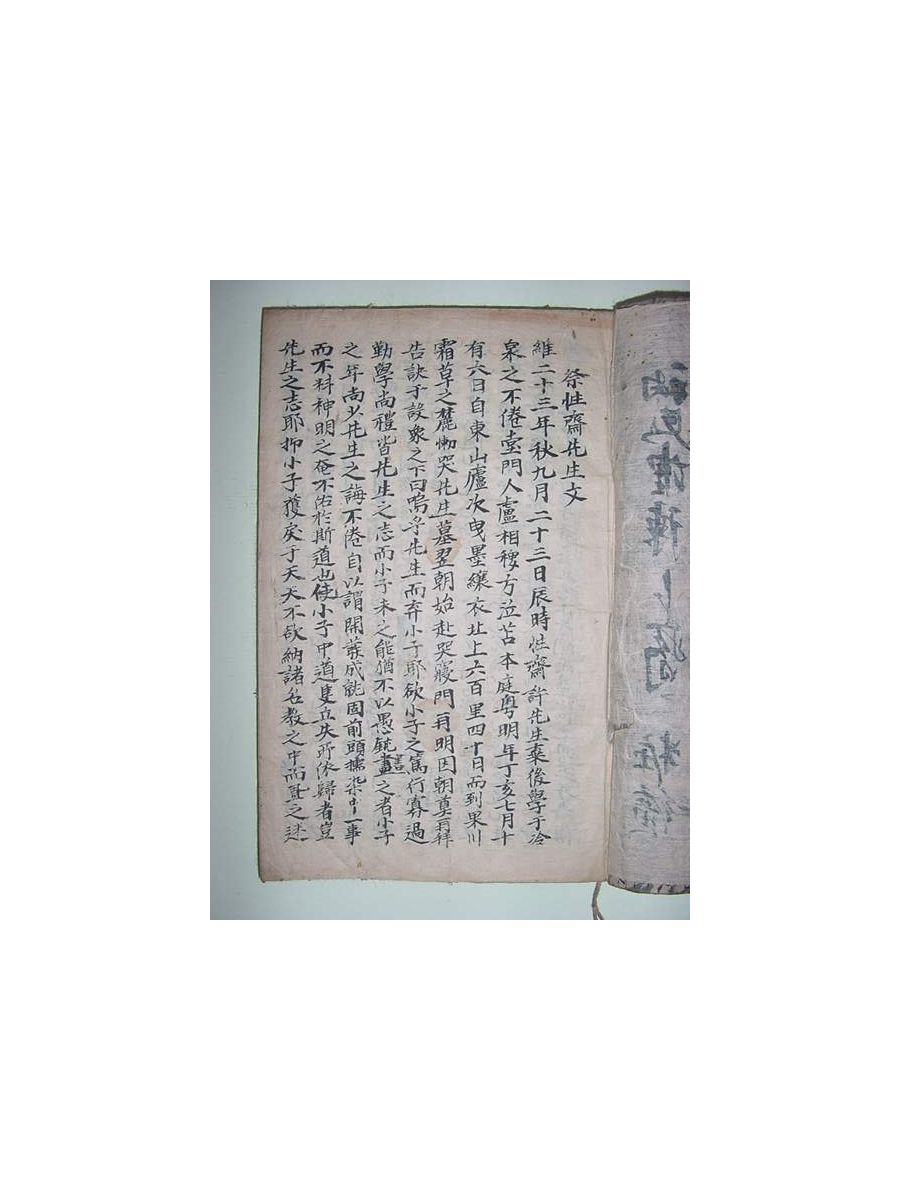 祭性齋先生文
維二十三年秋九月二十三日辰時性齋許先生棄後學于冷
泉之不倦堂門人盧相稷方泣苫本庭粤明年丁亥七月十
有六日自東山廬次曳墨縗衣北上六百里四十日而到果川
霜草之麓慟哭先生墓翌朝始赴哭寢門再明因朝奠再拜
告訣于設衆之下曰嗚乎先生而弃小子耶欲小子之篤行寡過
勤學尚禮皆先生之志而小子未之能猶不以愚鈍畫之者小子
之年尚少先生之誨不倦自以謂開發成就固前頭擩染中一事
而不料神明之奄不佑於斯道也使小子中道隻立失所依歸者豈
先生之志耶抑小子獲戾于天天不欲納諸名教之中而置之迷